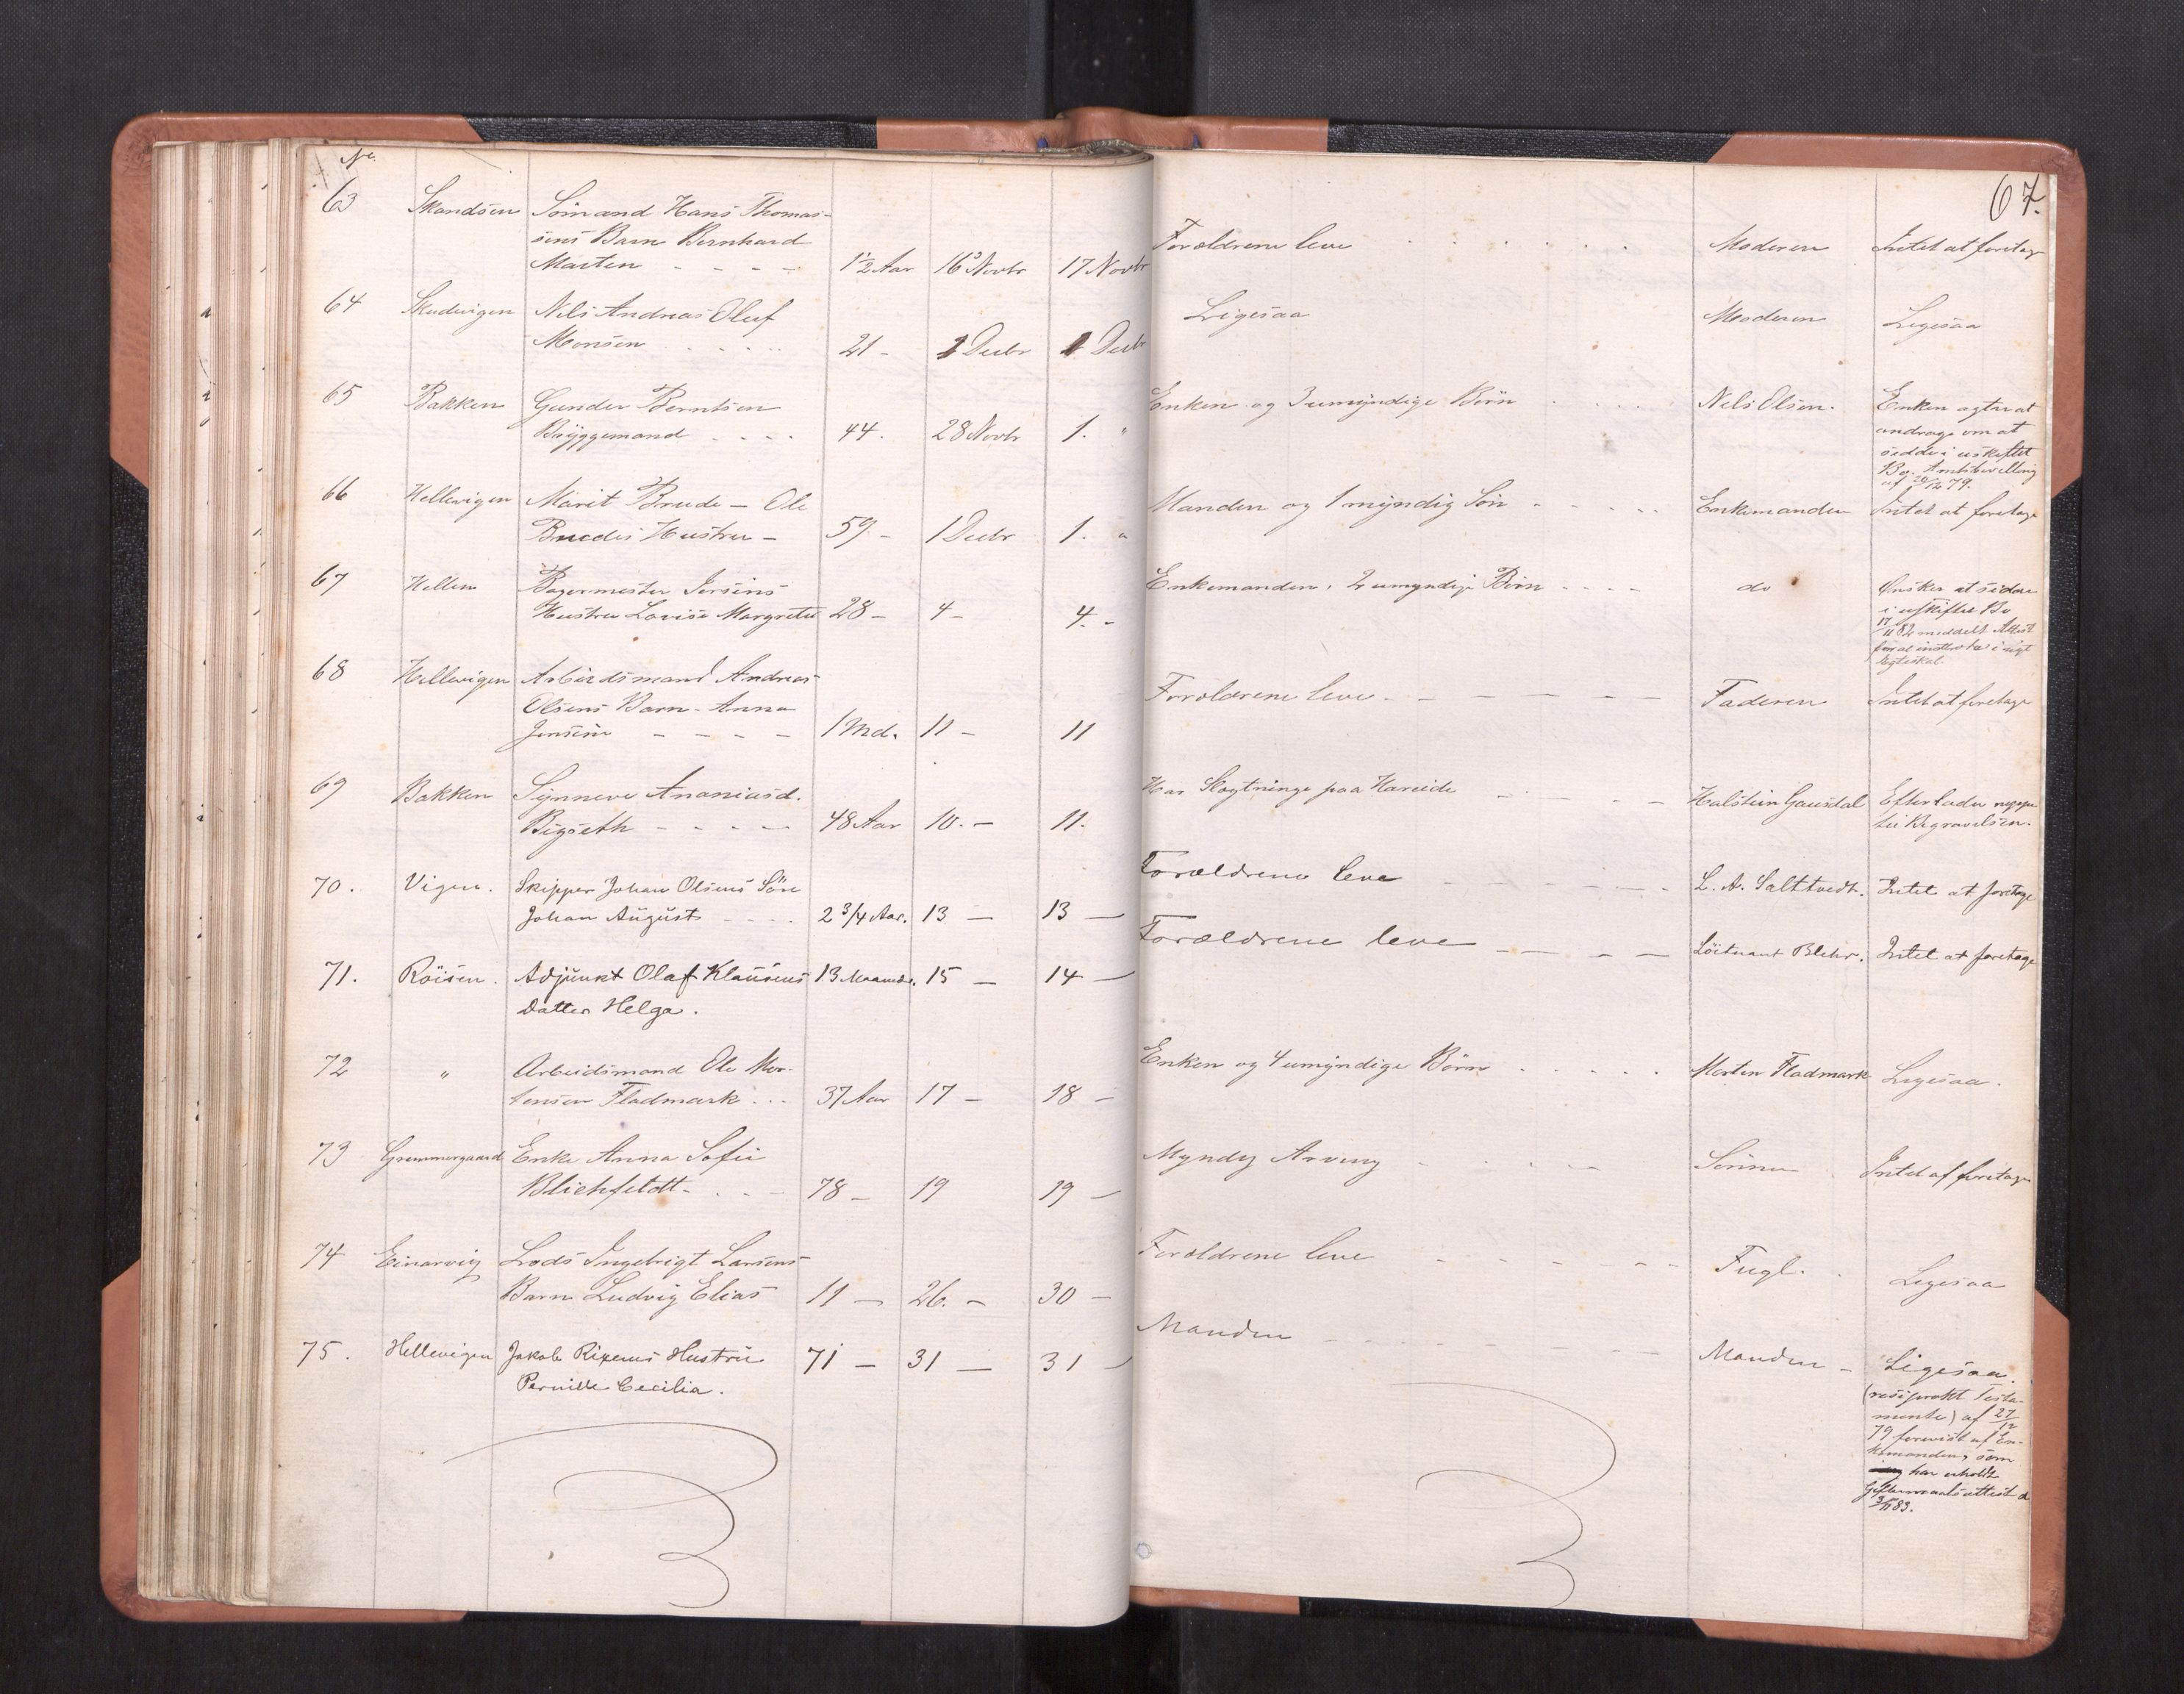 No.
67.
63 Skandsen Sömand Hans Thomas-
sens Barn Bernhard
Marten - - - - 1½ Aar 16 Novbr 17 Novbr
Forældrene leve . . . . . . Moderen Intet at foretage
64 Skudvigen Nils Andreas Oluf
Monsen . . . . . 21 - Decbr Decbr
Ligesaa Moderen Ligesaa
65 Bakken Gunder Berntsen
Bryggemand . . . . 44. 28 Novbr 1. "
Enken og 3 umyndige Börn . . . . Nels Olsen. Enken agter at
andrage om at
sidde i uskiftet
Bo. Amtsbevilling
af 20/12 79.
66 Hellevigen Marit Brude - Ole
Brudes Hustru - 59 - 1 Decbr 1. "
Manden og 1 myndig Sön - - - - - Enkemanden Intet at foretage
67 Hellen Bagermester Jersins
Hustru Lovise Margrete 28 - 4 - 4. -
Enkemanden, 2 umyndige Börn - - - - do Önsker at sidde
i uskiftet Bo
17/11 82 meddelt Attest
for at indtræde i nyt
Egteskab.
68 Hellevigen Arbeidsmand Andreas
Olsens Barn - Anna
Jensine - - - - 1 Md. 11 - 11
Forældrene leve. - - - - - Faderen Intet at foretage
69 Bakken Synneve Ananiasd.
Bigseth - - - - 48 Aar 10. - 11.
Har Slægtninge paa Hareide - - - - Halstein Gausdal Efterlader neppe
til Begravelsen.
70. Vigen. Skipper Johan Olsens Sön
Johan August - - - - 2 3/4 Aar. 13 - 13 -
Forældrene leve - - - - - - L. A. Salttvedt. Intet at foretage
71. Röisen. Adjunkt Olaf Klausens 13 Maaneder. 15 - 14 -
Datter Helga.
Forældrene leve - - - - Löitnant Blehr. Intet at foretage
72 " Arbeidsmand Ole Mor-
tensen Fladmark . . . 37 Aar 17 - 18 -
Enken og 4 umyndige Börn . . . . . Morten Fladmark Ligesaa.
73 Grimmergaard Enke Anna Sofie
Blichfeldt - . . - 78 - 19 19 -
Myndig Arving - - - - Sönnen Intet at foretage
74 Einarvig Lods Ingebrigt Larsens
Barn Ludvig Elias 11 - 26. - 30 -
Forældrene leve - - - - - - Fugl. . Ligesaa
75. Hellevigen Jakob Rixens Hustru 71 - 31 - 31 -
Pernille Cecilia.
Manden - - - - - - Manden - Ligesaa.
(resiprokt Testa-
mente) af 27/12
79 forevist af En-
kemanden, som
har erholdt
Giftermaalsattest d
3/11 83.